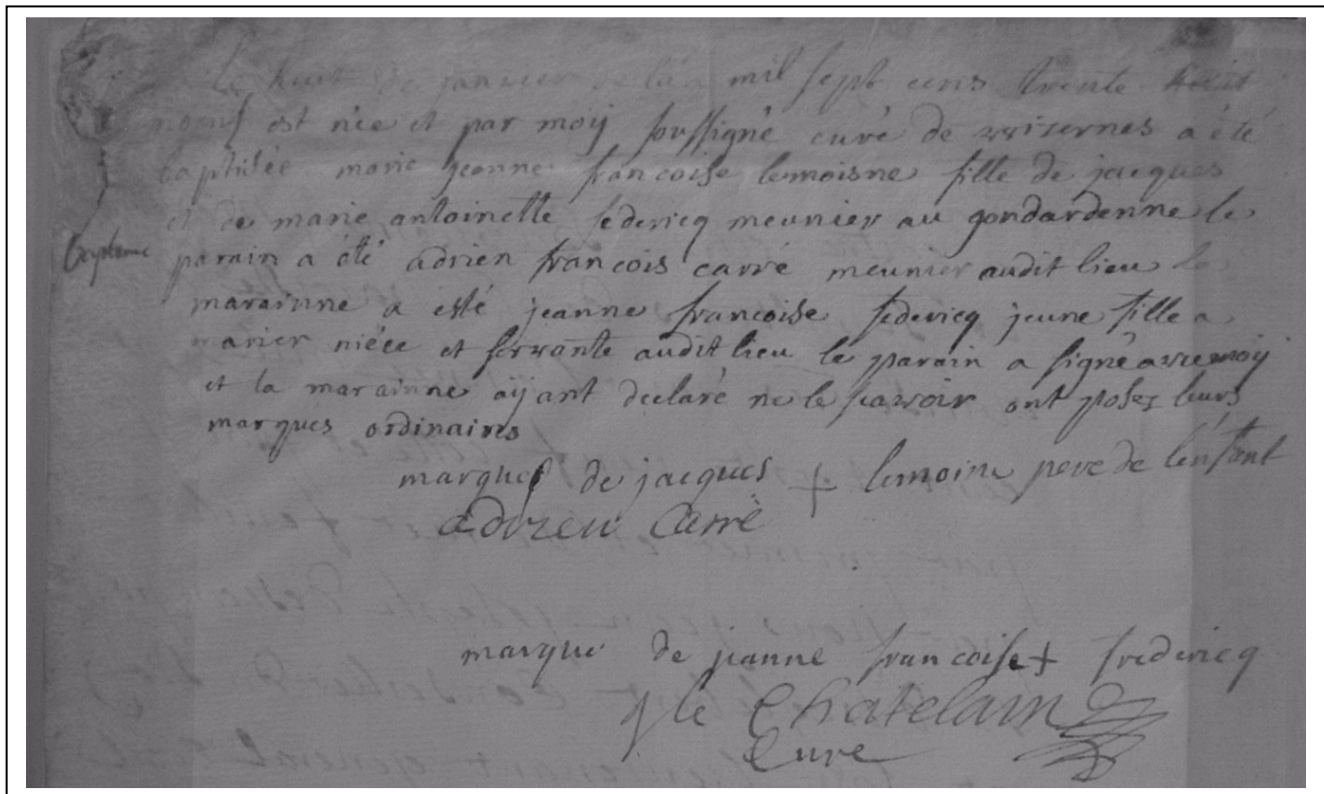 Le huit de janvier de l'an mil sept cens trente huit
noeuf est née et par moÿ soussigné curé de wizernes a été
baptisée marie jeanne francoise lemoisne fille de jacques
et de marie antoinette federicq meunier au gondardenne le
Baptême
parain a été adrien francois carré meunier audit lieu la
marainne a esté jeanne francoise federicq jeune fille a
marier niéce et servante audit lieu le parain a signé avec moÿ
et la marainne aÿant declaré ne le scavoir ont posez leurs
marques ordinaires
marque de jacques + lemoine pere de lenfant
adrien Carré
marque de jeanne francoise + frederícq
le Chatelain
Curé